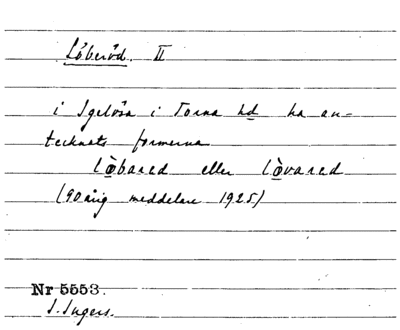 Löberöd. II
i Igelösa i Torna hd ha an-
tecknats formerna
lòbared eller lòvared
(90 årig meddelare 1925)
Nr 5553.
I. Ingers.